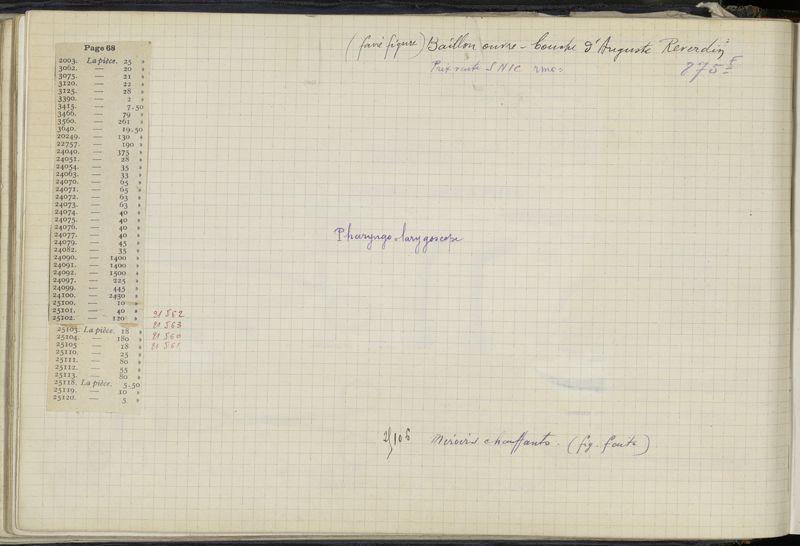 (faire figure) Baillon ouvre-bouche d'Auguste Reverdin
Prix vente SNIC
875 F
Page 68
2003. La pièce. 25 »
3062. — 20 »
3075. — 21 »
3120. — 22 »
3125. — 28 »
3390. — 2 »
3415. — 7.50
3466. — 79 »
3560. — 261 »
3640. — 19.50
20249. — 130 »
22757. — 190 »
24040. — 375 »
24051. — 28 »
24054. — 35 »
24063. — 33 »
24070. — 65 »
24071. — 65 »
24072. — 63 »
24073. — 63 »
24074. — 40 »
24075. — 40 »
24076. — 40 »
24077. — 40 »
24079. — 45 »
24082. — 35 »
24090. — 1400 »
24091. — 1400 »
24092. — 1500 »
24097. — 225 »
24099. — 445 »
24100. — 2430 »
25100. — 10 »
25101. — 40 »
25102. — 120 »
25103. La pièce. 18 »
25104. — 180 »
25105 — 18 »
25110. — 25 »
25111. — 80 »
25112. — 55 »
25113. — 80 »
25118. La pièce. 5.50
25119. — 10 »
25120. — 5 »
21562
21563
21560
21561
Pharyngo-larygoscope
25106 Miroirs chauffants. (fig. faite)